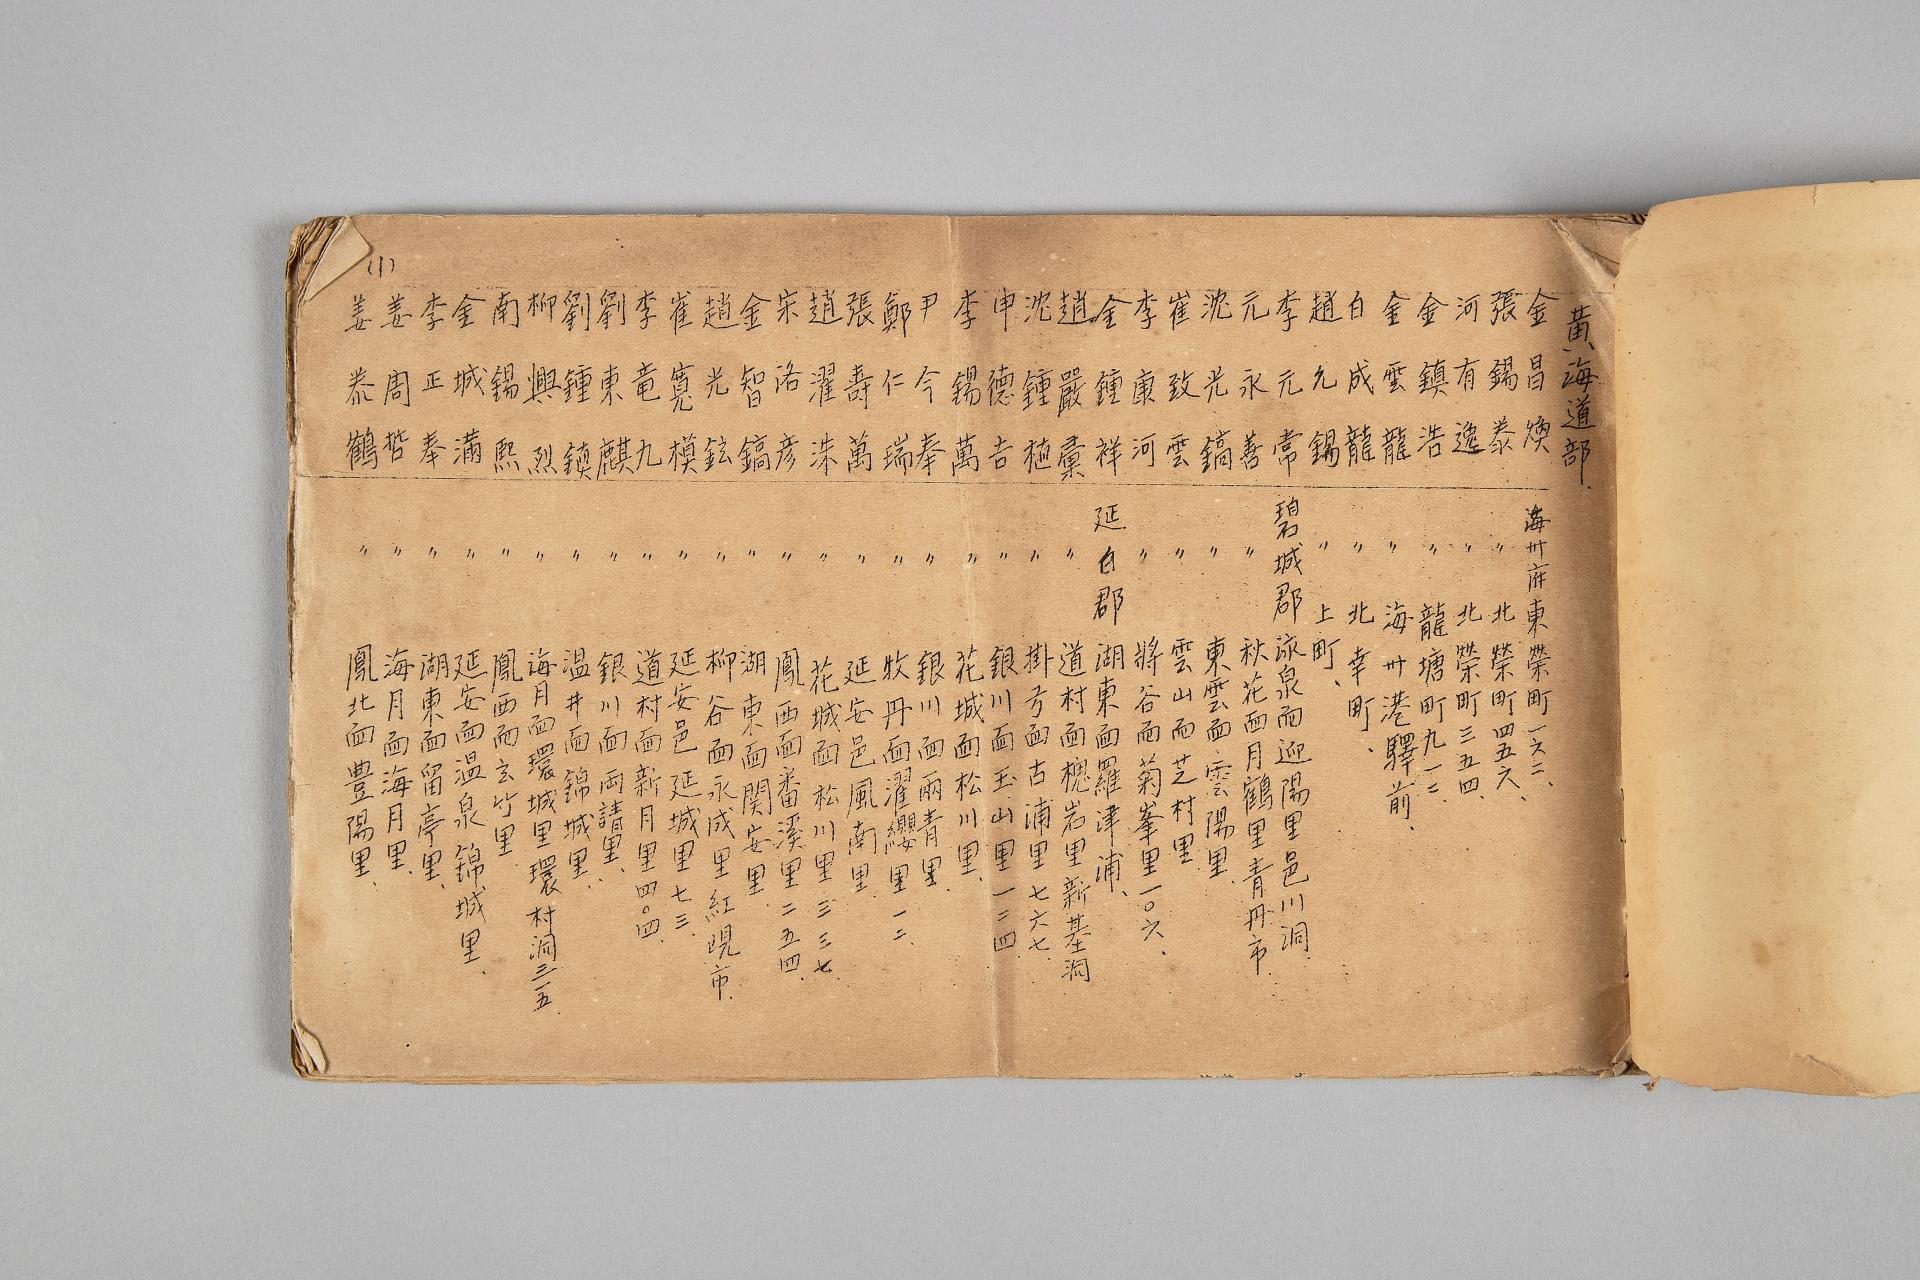 黃海道部.
金昌煥 海州府東榮町一六二、
張錫泰 〃 北榮町四五六、
河有逸 〃 北榮町三五四、
金鎮浩 〃 龍塘町九一二、
金雲龍 〃 海州港驛前、
白成龍 〃 北幸町、
趙允錫 〃 上町、
李元常 碧城郡 泳泉面迎陽里邑川洞
元永善 〃 秋花面月鶴里青丹市
沈光鎬 〃 東雲面雲陽里.
崔致雲 〃 雲山面芝村里
李康河 〃 將谷面菊峯里一〇六、
金鍾祥 延白郡 湖東面羅津浦、
趙嚴 〃 道村面槐岩里新基洞
沈鍾植 〃 掛弓面古浦里七六七
申德吉 〃 銀川面玉山里一二四
李錫萬 〃 花城面松川里、
尹今奉 〃 銀川面兩青里、
鄭仁瑞 〃 牧丹面濯纓里一二
張壽萬 〃 延安邑鳳南里、
趙濯洙 〃 花城面松川里三三七
宋洛彦 〃 鳳西面番溪里二五四、
金智鎬 〃 湖東面関安里、
趙光鉉 〃 柳谷面永成里紅峴市、
崔寬模 〃 延安邑延城里七三
李竜九 〃 道村面新月里四〇四
劉東麒 〃 銀川面両請里、
劉鍾鎮 〃 温井面錦城里、
柳興烈 〃 海月面環城里環村洞三一五
南錫熙 〃 鳳西面玄竹里
金城滿 〃 延安面温泉錦城里、
李正奉 〃 湖東面留亭里、
姜周哲 〃 海月面海月里、
姜泰鶴 〃 鳳北面豊陽里、
(1)